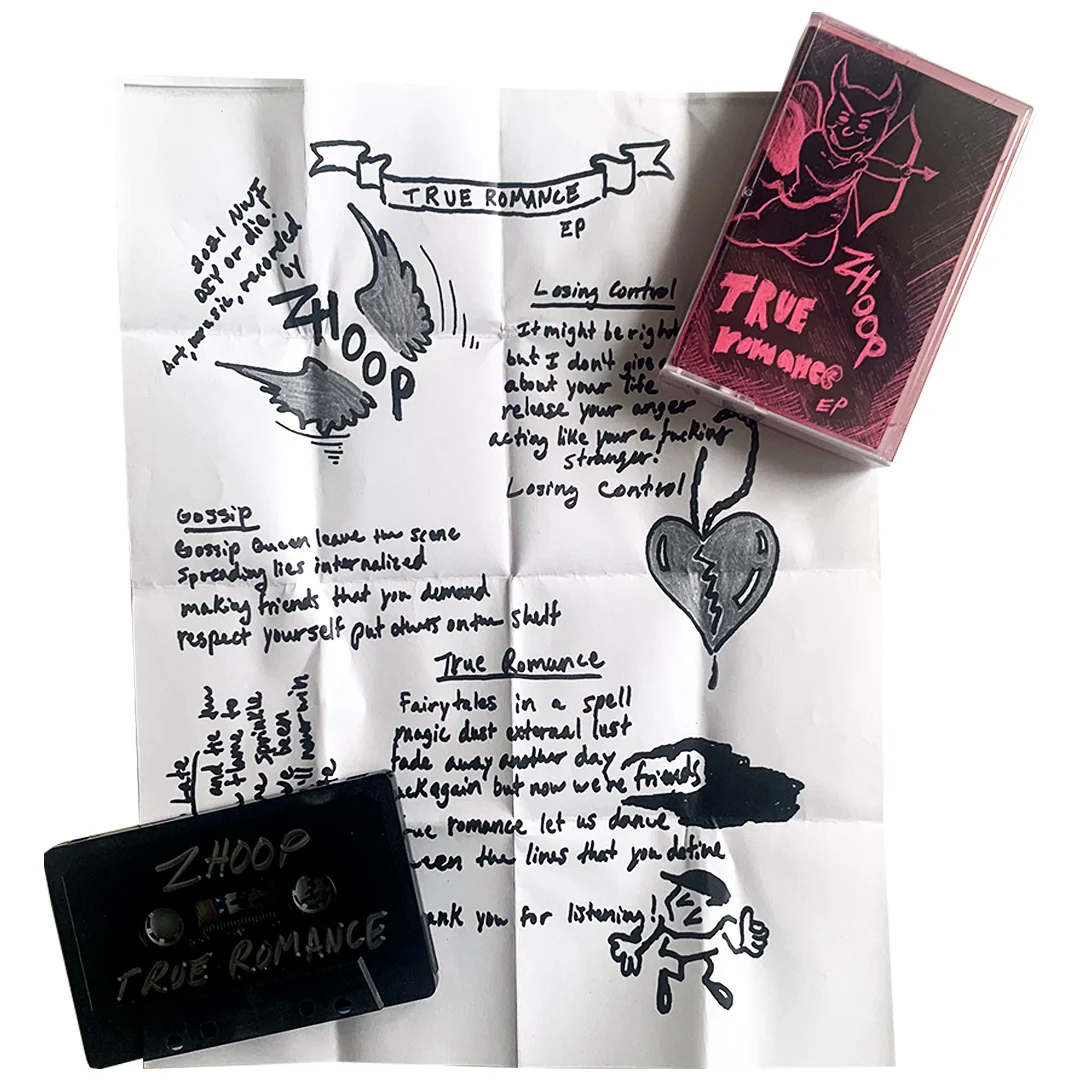 TRUE ROMANCE
EP
2021 NWI
DIY or die!
Art, music, recorded
by
ZHOOP
Losing Control
It might be right
but I don't give a
about your life
release your anger
acting like your a fucking
stranger!
Losing Control
Gossip
Gossip Queen leave the scene
spreading lies internalized
making friends that you demand
respect yourself put others on the shelf
True Romance
Fairytales in a spell
magic dust external lust
fade away another day
again but now we're friends
romance let us dance
the lines that you define
you for listening!
Late
and tie the
flame to
sprinkle
been
never win
ZHOOP
TRUE
romance
EP
ZHOOP
TRUE ROMANCE